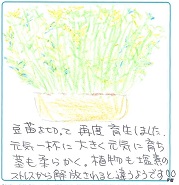 豆苗まむって再度育生しました。
元気一杯に大きく元気に育ち
茎も柔らかく。植物も塩素の
ストレスから解放されると違うようです